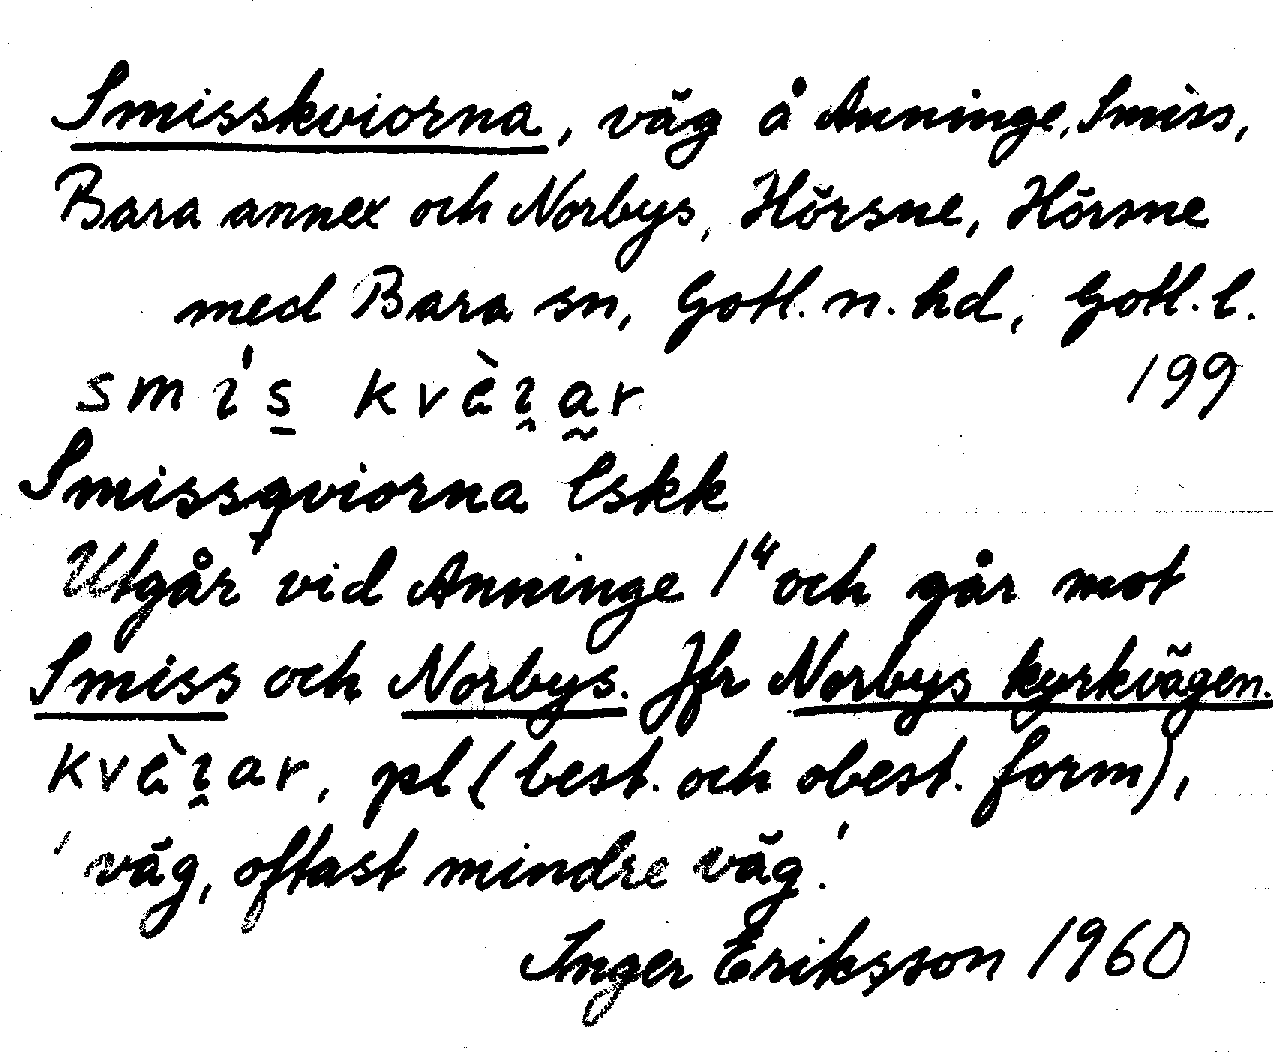 Smisskviorna, väg å Anninge, Smiss,
Bara annex och Norbys, Hörsne, Hörsne
med Bara sn, Gotl. n. hd, Gotl. l.
smı's kvè̀ı̯ar 199
Smissqviorna Eskk
Utgår vid Anninge 1⁴ och går mot
Smiss och Norbys. Jfr Norbys kyrkvägen.
kvèı̯ar, pl (best. och obest. form),
'väg, oftast mindre väg'.
Inger Eriksson 1960